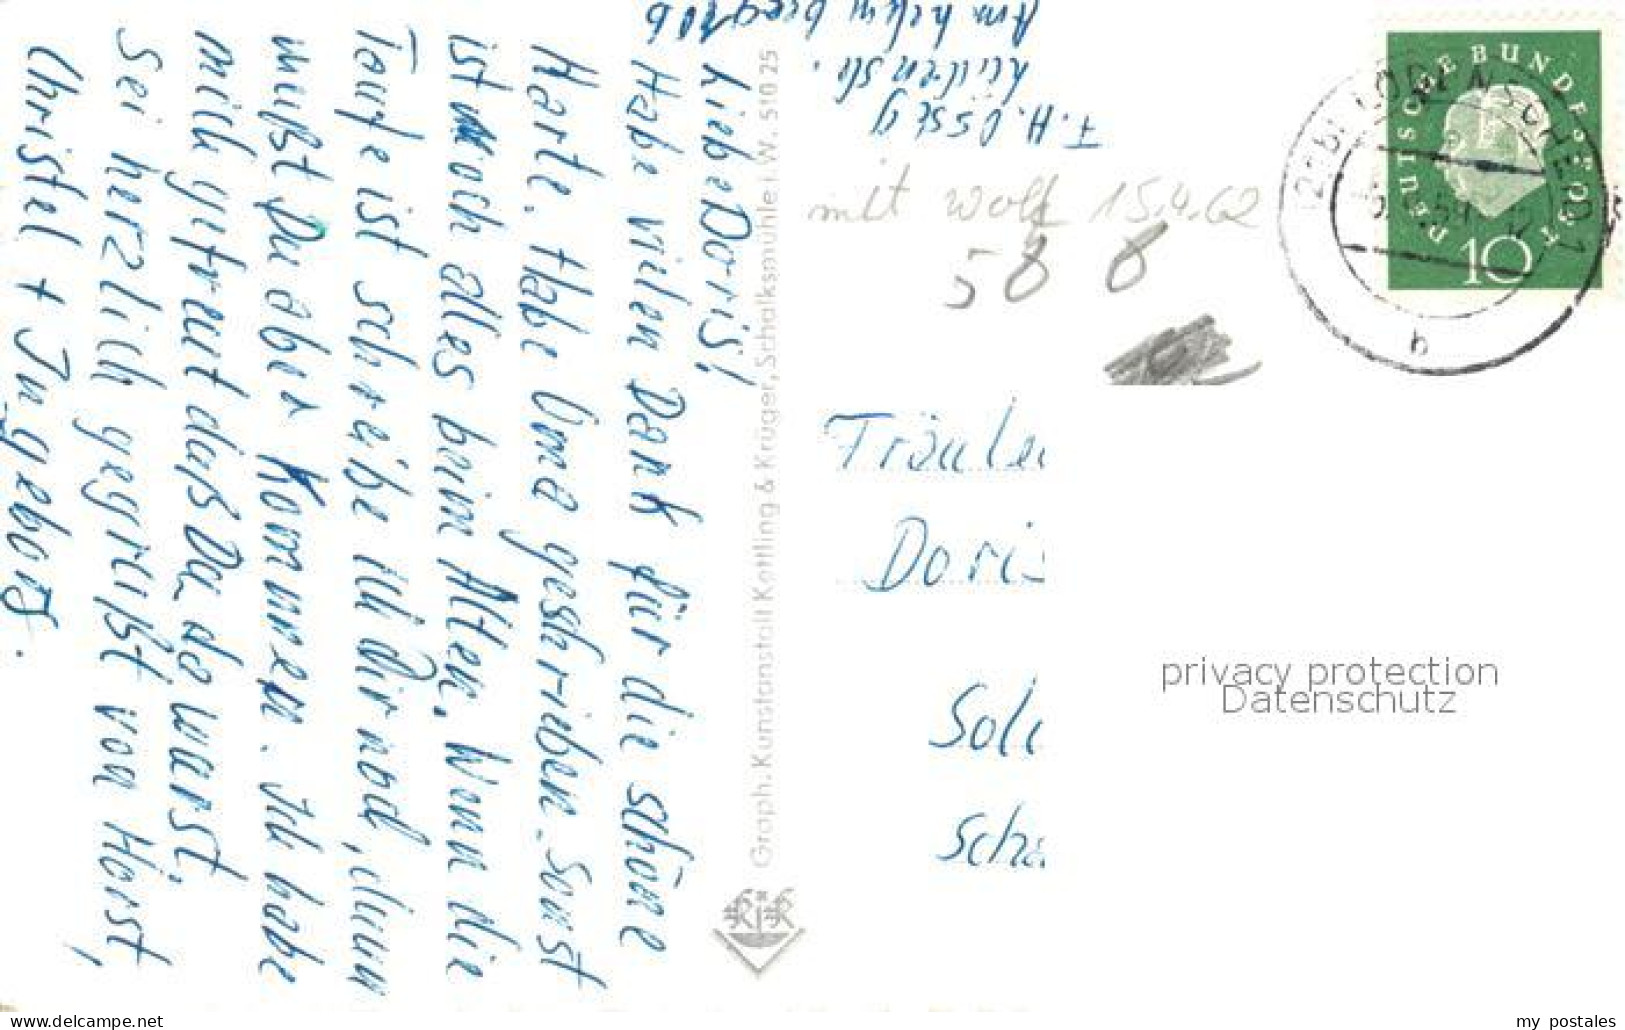 Liebe Doris!
Habe vielen Dank für die schöne
Karte. Habe Oma geschrieben. Sonst
ist noch alles beim Alten. Wenn die
Taufe ist schreibe ich Dir noch, dann
mußt Du aber Kommen. Ich habe
mich gefreut daß Du da warst,
Sei herzlich gegrüßt von Horst,
Christel + Ingeborg.
Graph. Kunstanstalt Kettling & Krüger, Schalksmühle i. W. 510 25
mit Wolf 15.4.62
58 8
DEUTSCHE BUNDESPOST
10
b
Fräulei
Doris
Soli
Scha
privacy protection
Datenschutz
delcampe.net
my_postales